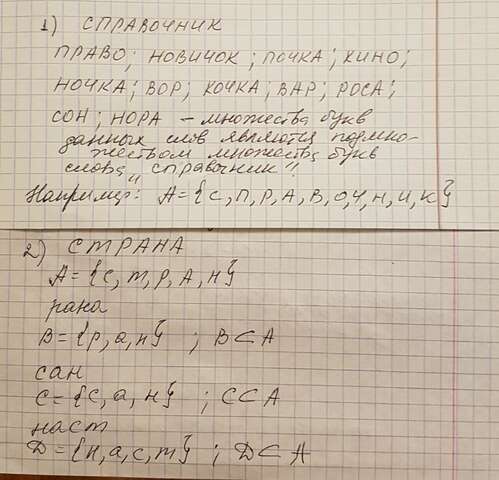 1) СПРАВОЧНИК
ПРАВО; НОВИЧОК; ПОЧКА; КИНО;
НОЧКА; ВОР; КОЧКА; ВАР; РОСА;
СОН; НОРА – множества букв
данных слов являются подмно-
жеством множества букв
слова „справочник"
Например: А={С,П,Р,А,В,О,Ч,Н,И,К}
2) СТРАНА
А={С,Т,Р,А,Н}
рана
В={р,а,н} ; В⊂А
сан
С={С,а,Н} ; С⊂А
наст
Д={Н,а,с,т} ; Д⊂А